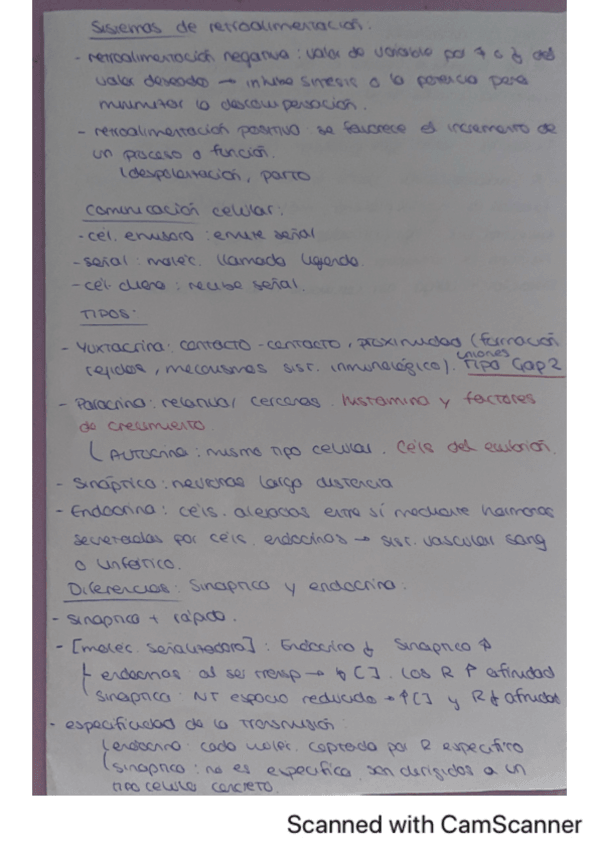 Sistemas de retroalimentación.
- retroalimentación negativa: valor de variable por ↑ o ↓ del
valor deseado → inhibe síntesis o la potencia para
minimizar la descompensación.
- retroalimentación positiva: se favorece el incremento de
un proceso o función.
(despolarización, parto
Comunicación celular:
- cél. emisora: emite señal
- señal: moléc. llamada ligando.
- cél. diana: recibe señal.
TIPOS:
- Yuxtacrina: contacto-contacto, proximidad (formación
tejidos, mecanismos sist. inmunológico). uniones Tipo Gap 2
- Paracrina: relativa/ cercanas. histamina y factores
de crecimiento.
( Autocrina: mismo tipo celular. Céls del embrión.
- Sináptica: neuronas larga distancia
- Endocrina: céls. alejadas entre sí mediante hormonas
secretadas por céls. endocrinas → sist. vascular sang
o linfático.
Diferencias: Sináptica y endocrina:
- sináptica + rápida.
- [moléc. señalizadora]: Endocrina ↓ Sináptica ↑
endocrinas al ser transp → ↓ [ ]. Los R ↑ afinidad
sináptica: NT espacio reducido → ↑ [ ] y R ↓ afinidad
- especificidad de la transmisión:
(endocrina: cada moléc. captada por R específico
(sináptica: no es específica, son dirigidos a un
tipo celular concreto.
Scanned with CamScanner